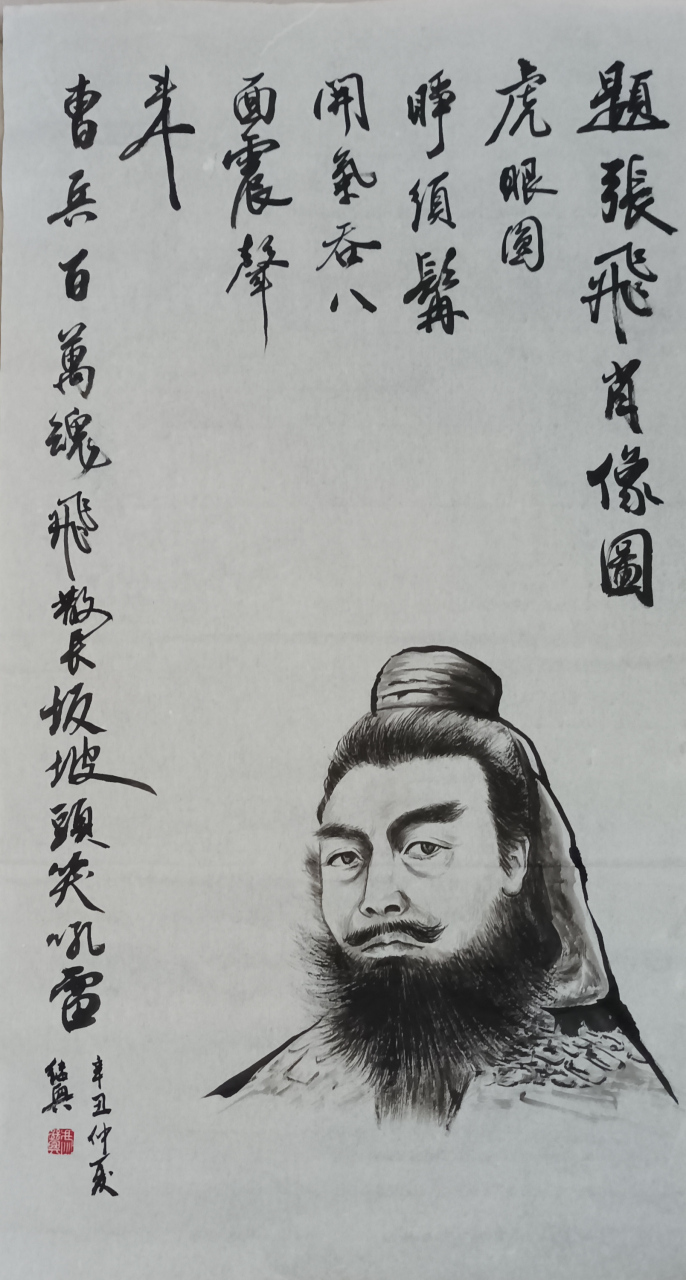 題張飛肖像圖
虎眼圓
睜須髯
開氣吞八
面震聲
来
曹兵百萬魂飛散長坂坡頭笑吼雷
辛丑仲夏
紹興